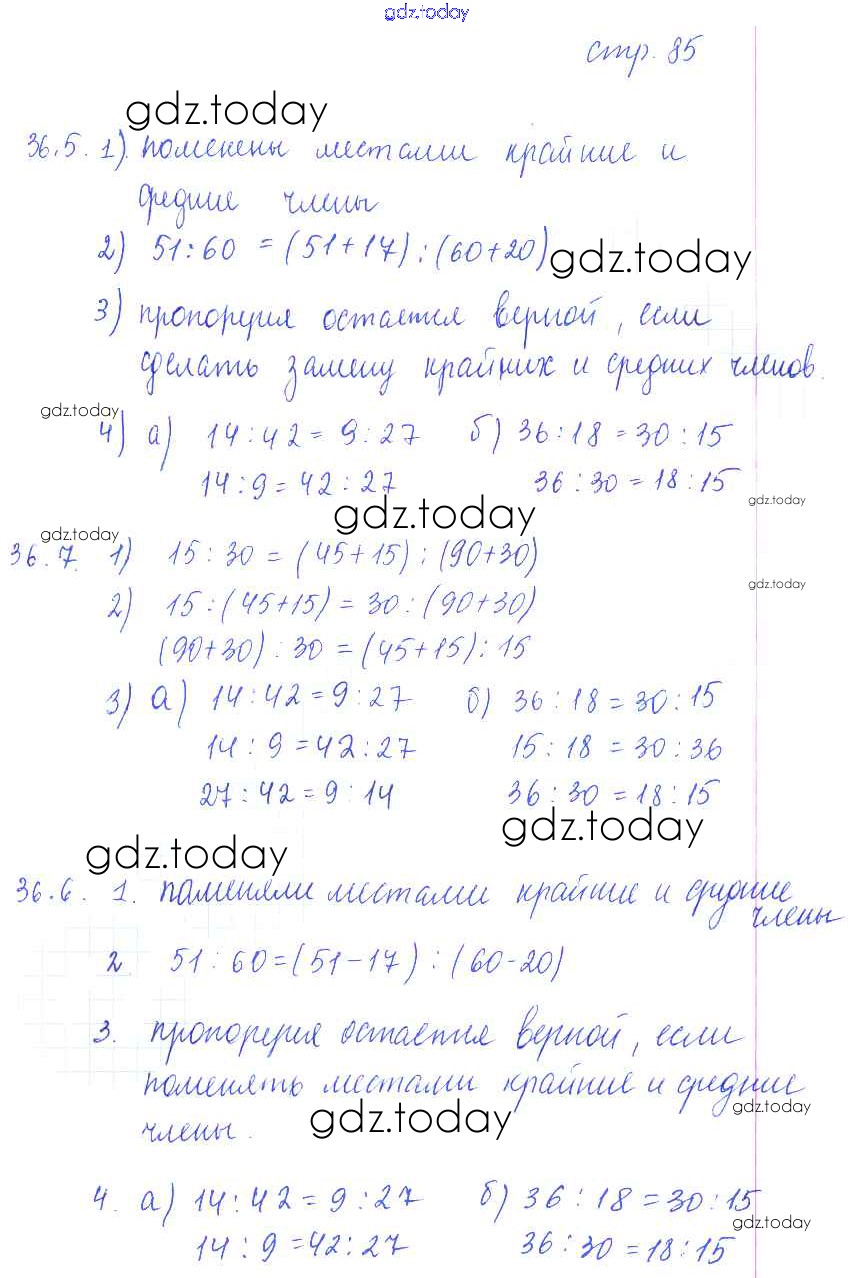 gdz.today
стр. 85
gdz.today
36.5. 1) поменены местами крайние и
средние члены
2) 51:60 = (51+17) : (60+20)
gdz.today
3) пропорция остается верной, если
сделать замену крайних и средних членов.
gdz.today
4) а) 14:42 = 9:27 б) 36:18 = 30:15
14:9 = 42:27 36:30 = 18:15
gdz.today
gdz.today
gdz.today
36.7. 1) 15:30 = (45+15) : (90+30)
gdz.today
2) 15:(45+15) = 30:(90+30)
(90+30) : 30 = (45+15) : 15
3) а) 14:42 = 9:27 б) 36:18 = 30:15
14:9 = 42:27 15:18 = 30:36
27:42 = 9:14 36:30 = 18:15
gdz.today
gdz.today
36.6. 1. поменяли местами крайние и средние
члены
2 51:60 = (51-17) : (60-20)
3. пропорция остается верной, если
поменять местами крайние и средние
gdz.today
члены.
gdz.today
4. а) 14:42 = 9:27 б) 36:18 = 30:15
gdz.today
14:9 = 42:27 36:30 = 18:15